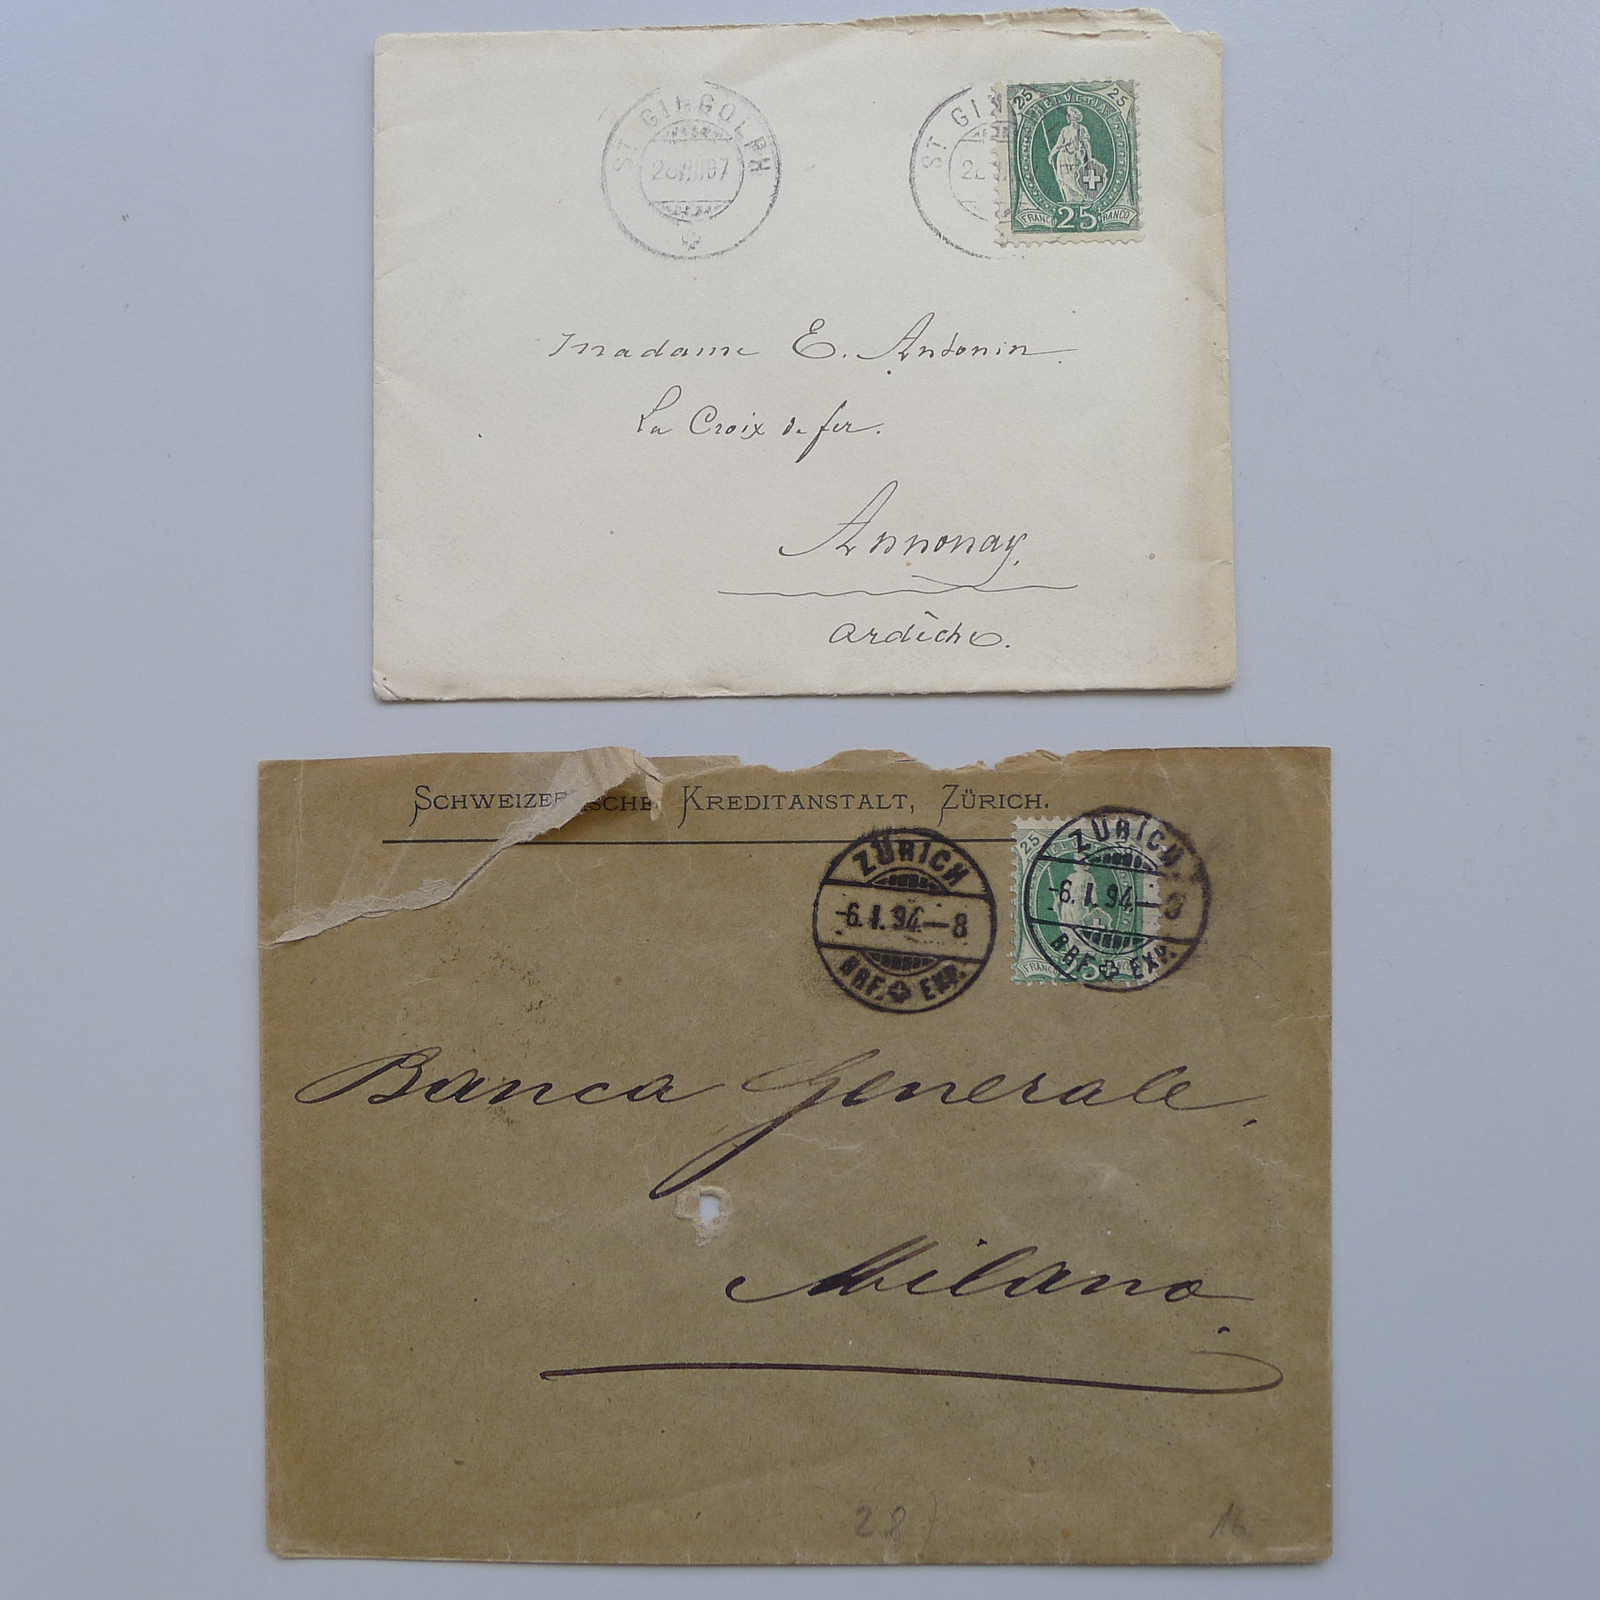 ST. GINGOLPH
ST. GI
25 HELVETIA 25
FRANCO 25 FRANCO
Madame E. Antonin
La Croix de fer.
Annonay.
Ardèche.
SCHWEIZERISCHE KREDITANSTALT, ZÜRICH.
ZÜRICH
-6.I.94.-8
BRF. EXP.
25
ZÜRICH
-6.I.94.-8
BRF. EXP.
FRANCO
Banca Generale,
Milano
28)
16